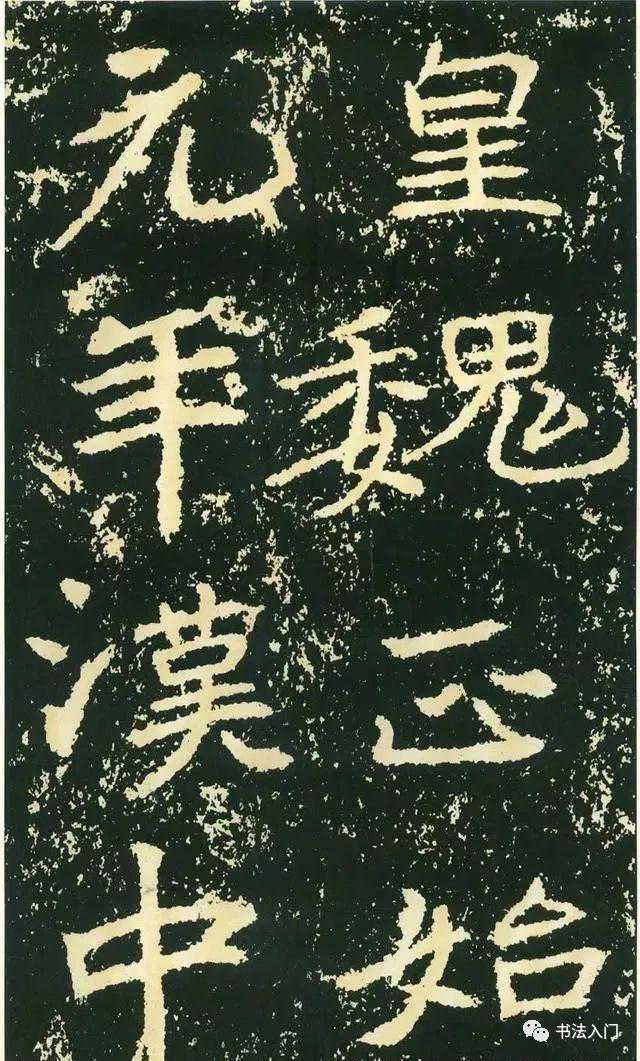 皇魏正始
元年漢中
书法入门